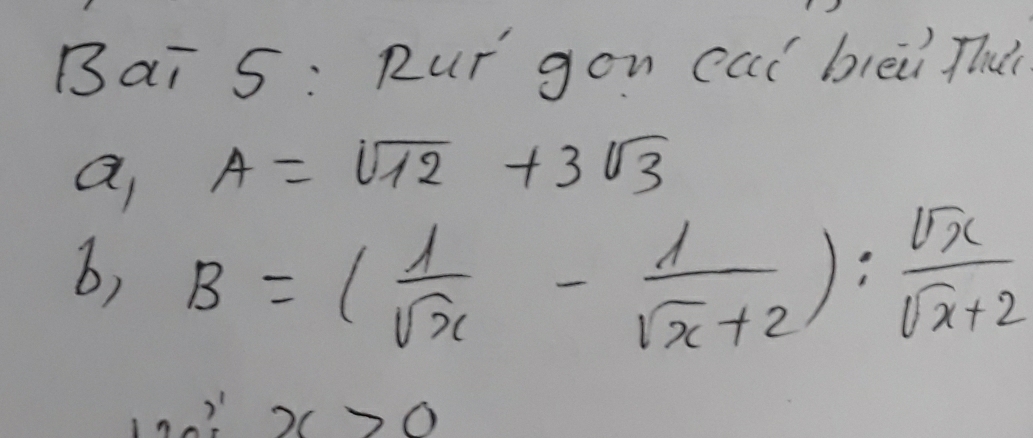 Bài 5: Rút gọn các biểu thức
a, A = √12 + 3√3
b, B = (1/√x - 1/(√x+2)) : √x/(√x+2)
với x > 0